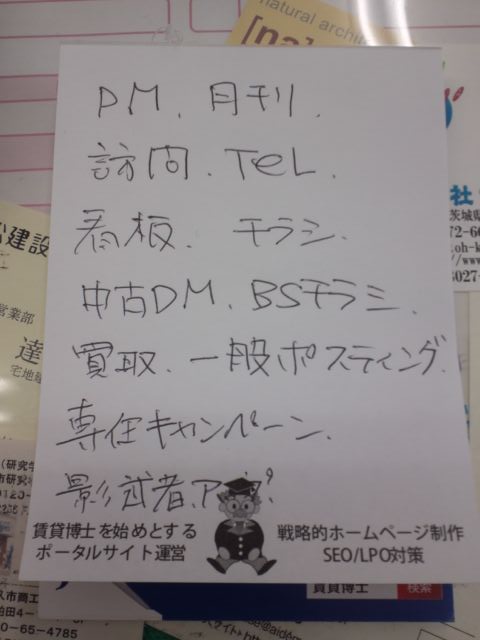 natural archi
[na]
PM、月刊、
訪問、TEL、
看板、チラシ、
中古DM、BSチラシ、
買取、一般ポスティング、
専任キャンペーン、
影武者、アポ
賃貸博士を始めとする
ポータルサイト運営
戦略的ホームページ制作
SEO/LPO対策
建設
営業部
達
宅地建
(研究学
市研究
0120-
久市商工
柏田4-
60-65-4785
社
茨城県
72-66
oh-k
//www
8027-
賃貸博士
検索